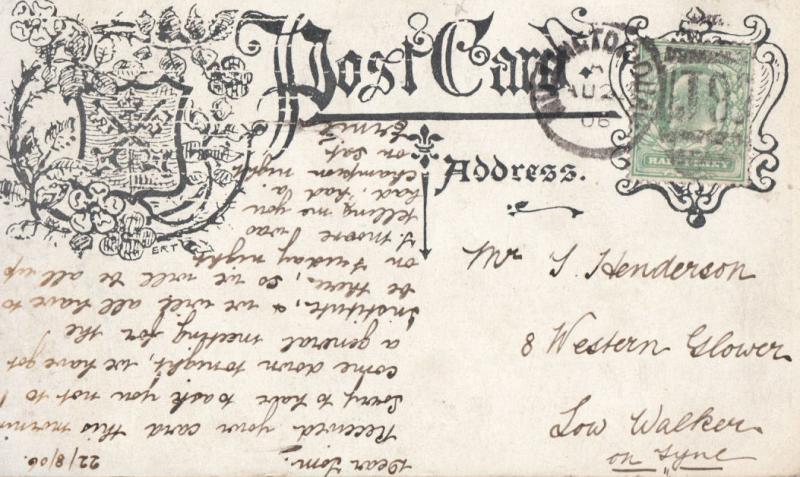 Post Card
Address.
HALFPENNY
Mr T. Henderson
8 Western Glower
Low Walker
on Tyne
22/8/06.
Dear Tom,
Received your card this
Sorry to have to ask you not to
come down tonight, we have got
a general meeting for the
Institute, & we will all have to
be there, so we will be all up
on Friday night
T. Moore was
telling me you
had, had a
champion night
on Sat.
Ernie
ERT